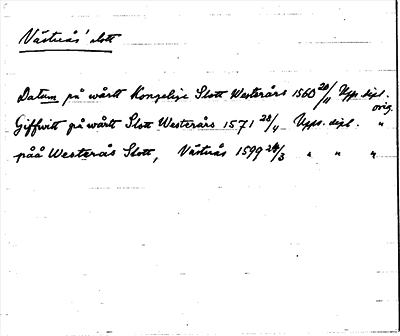 Västerås' slott
Datum på wårtt Kongelige Slott Westerårs 1560 20/11 Upps. dipl. orig.
Giffwitt på wårtt Slott Westerårs 1571 28/4 Upps. dipl. "
påå Westerås Slott, Västerås 1599 24/3 " " "